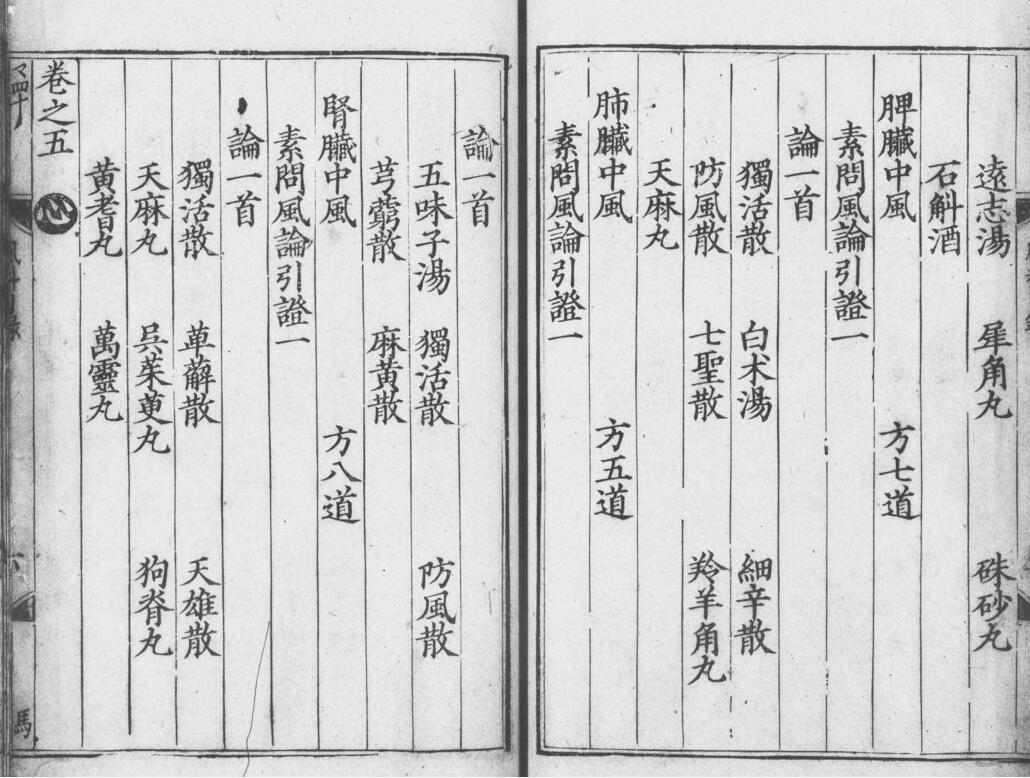 遠志湯 犀角丸 硃砂丸
石斛酒
脾臟中風 方七道
素問風論引證一
論一首
獨活散 白术湯 細辛散
防風散 七聖散 羚羊角丸
天麻丸
肺臟中風 方五道
素問風論引證一
論一首
五味子湯 獨活散 防風散
芎藭散 麻黃散
腎臟中風 方八道
素問風論引證一
論一首
獨活散 萆薢散 天雄散
天麻丸 吳茱萸丸 狗脊丸
黃耆丸 萬靈丸
卷之五
六
馬